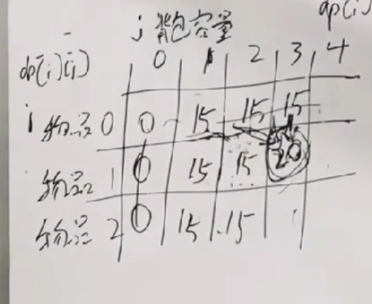 j 背包容量
dp(i)
dp[i][j]
0 1 2 3 4
i 物品0 0 15 15 15
物品1 0 15 15 20
物品2 0 15 15